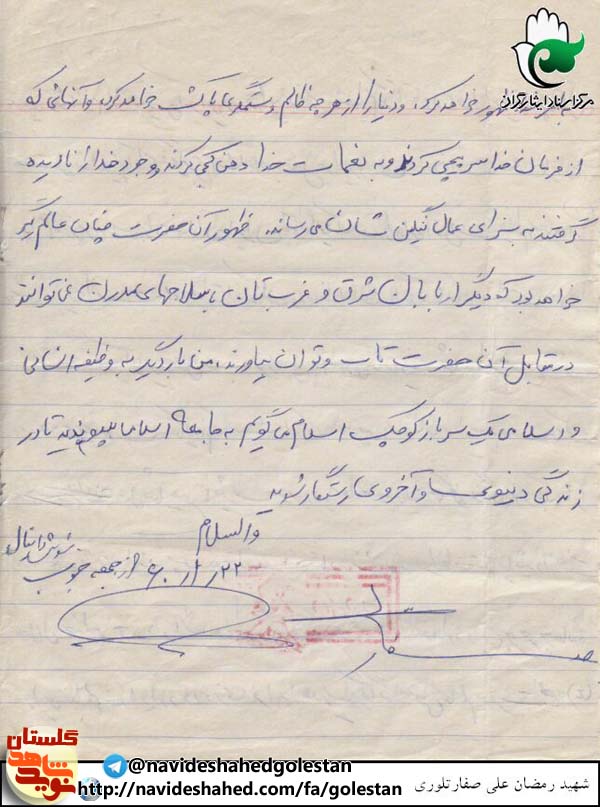 مرکز اسناد ایثارگران
ظهور خواهد کرد. و دنیا را از هر چه ظالم و ستمگر پاک خواهد کرد و آنهائی که
از فرمان خدا سرپیچی کردند و به نعمات خدا دهن کجی کردند وجود خدا را نادیده
گرفتند به سزای عمال ننگین شان می رساند. ظهور آن حضرت چنان عالم گیر
خواهد بود که دیگر اربابان شرق و غرب تان با سلاحهای مدرن نمی توانند
در مقابل آن حضرت تاب و توان بیاورند، من بار دیگر به وظیفه انسانی
و اسلامی یک سرباز کوچک اسلام می گویم به جامعه اسلام بپیوندید تا در
زندگی دنیوی و آخروی رستگار شوید
والسلام
۲۲ر۱ر۶۰ از جبهه جنوب
گلستان
نوید شاهد
@navideshahedgolestan
http://navideshahed.com/fa/golestan
شهید رمضان علی صفارتلوری